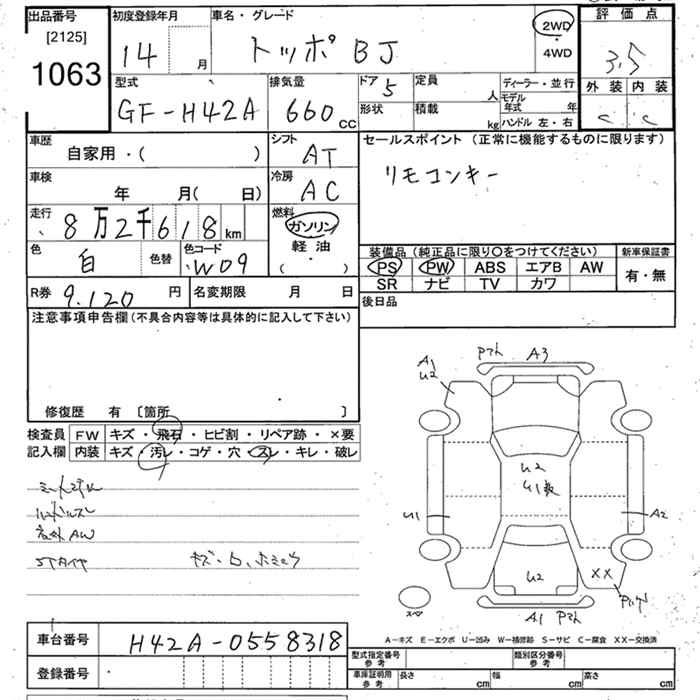 出品番号 初度登録年月 車名・グレード 評価点
[2125] 14 月 トッポBJ 2WD・4WD 3.5
1063
型式 排気量 ドア 5 定員 人 ディーラー・並行 外装 内装
GF-H42A 660cc 形状 積載 kg モデル年式 年 C C
ハンドル 左・右
車歴 シフト セールスポイント (正常に機能するものに限ります)
自家用・( ) AT
車検 冷房 リモコンキー
年 月( 日) AC
走行 燃料
8万2千618km ガソリン
色 色替 色コード 軽油 装備品 (純正品に限り○をつけてください) 新車保証書
白 W09 ( ) PS PW ABS エアB AW 有・無
SR ナビ TV カワ
R券 9.120 円 名変期限 月 日 後日品
注意事項申告欄(不具合内容等は具体的に記入して下さい)
修復歴 有 [箇所 ]
検査員 FW キズ・飛石・ヒビ割・リペア跡・×要
記入欄 内装 キズ・汚レ・コゲ・穴・スレ・キレ・破レ
社外AW
STタイヤ
A3
A1
U2
U2
U1
A2
U2 XX
A1
スペア
A－キズ E－エクボ U－凹み W－補修跡 S－サビ C－腐食 XX－交換済
車台番号 H42A-0558318
登録番号
型式指定番号 参考 類別区分番号 参考
車庫証明用 参考 長さ cm 幅 cm 高さ cm